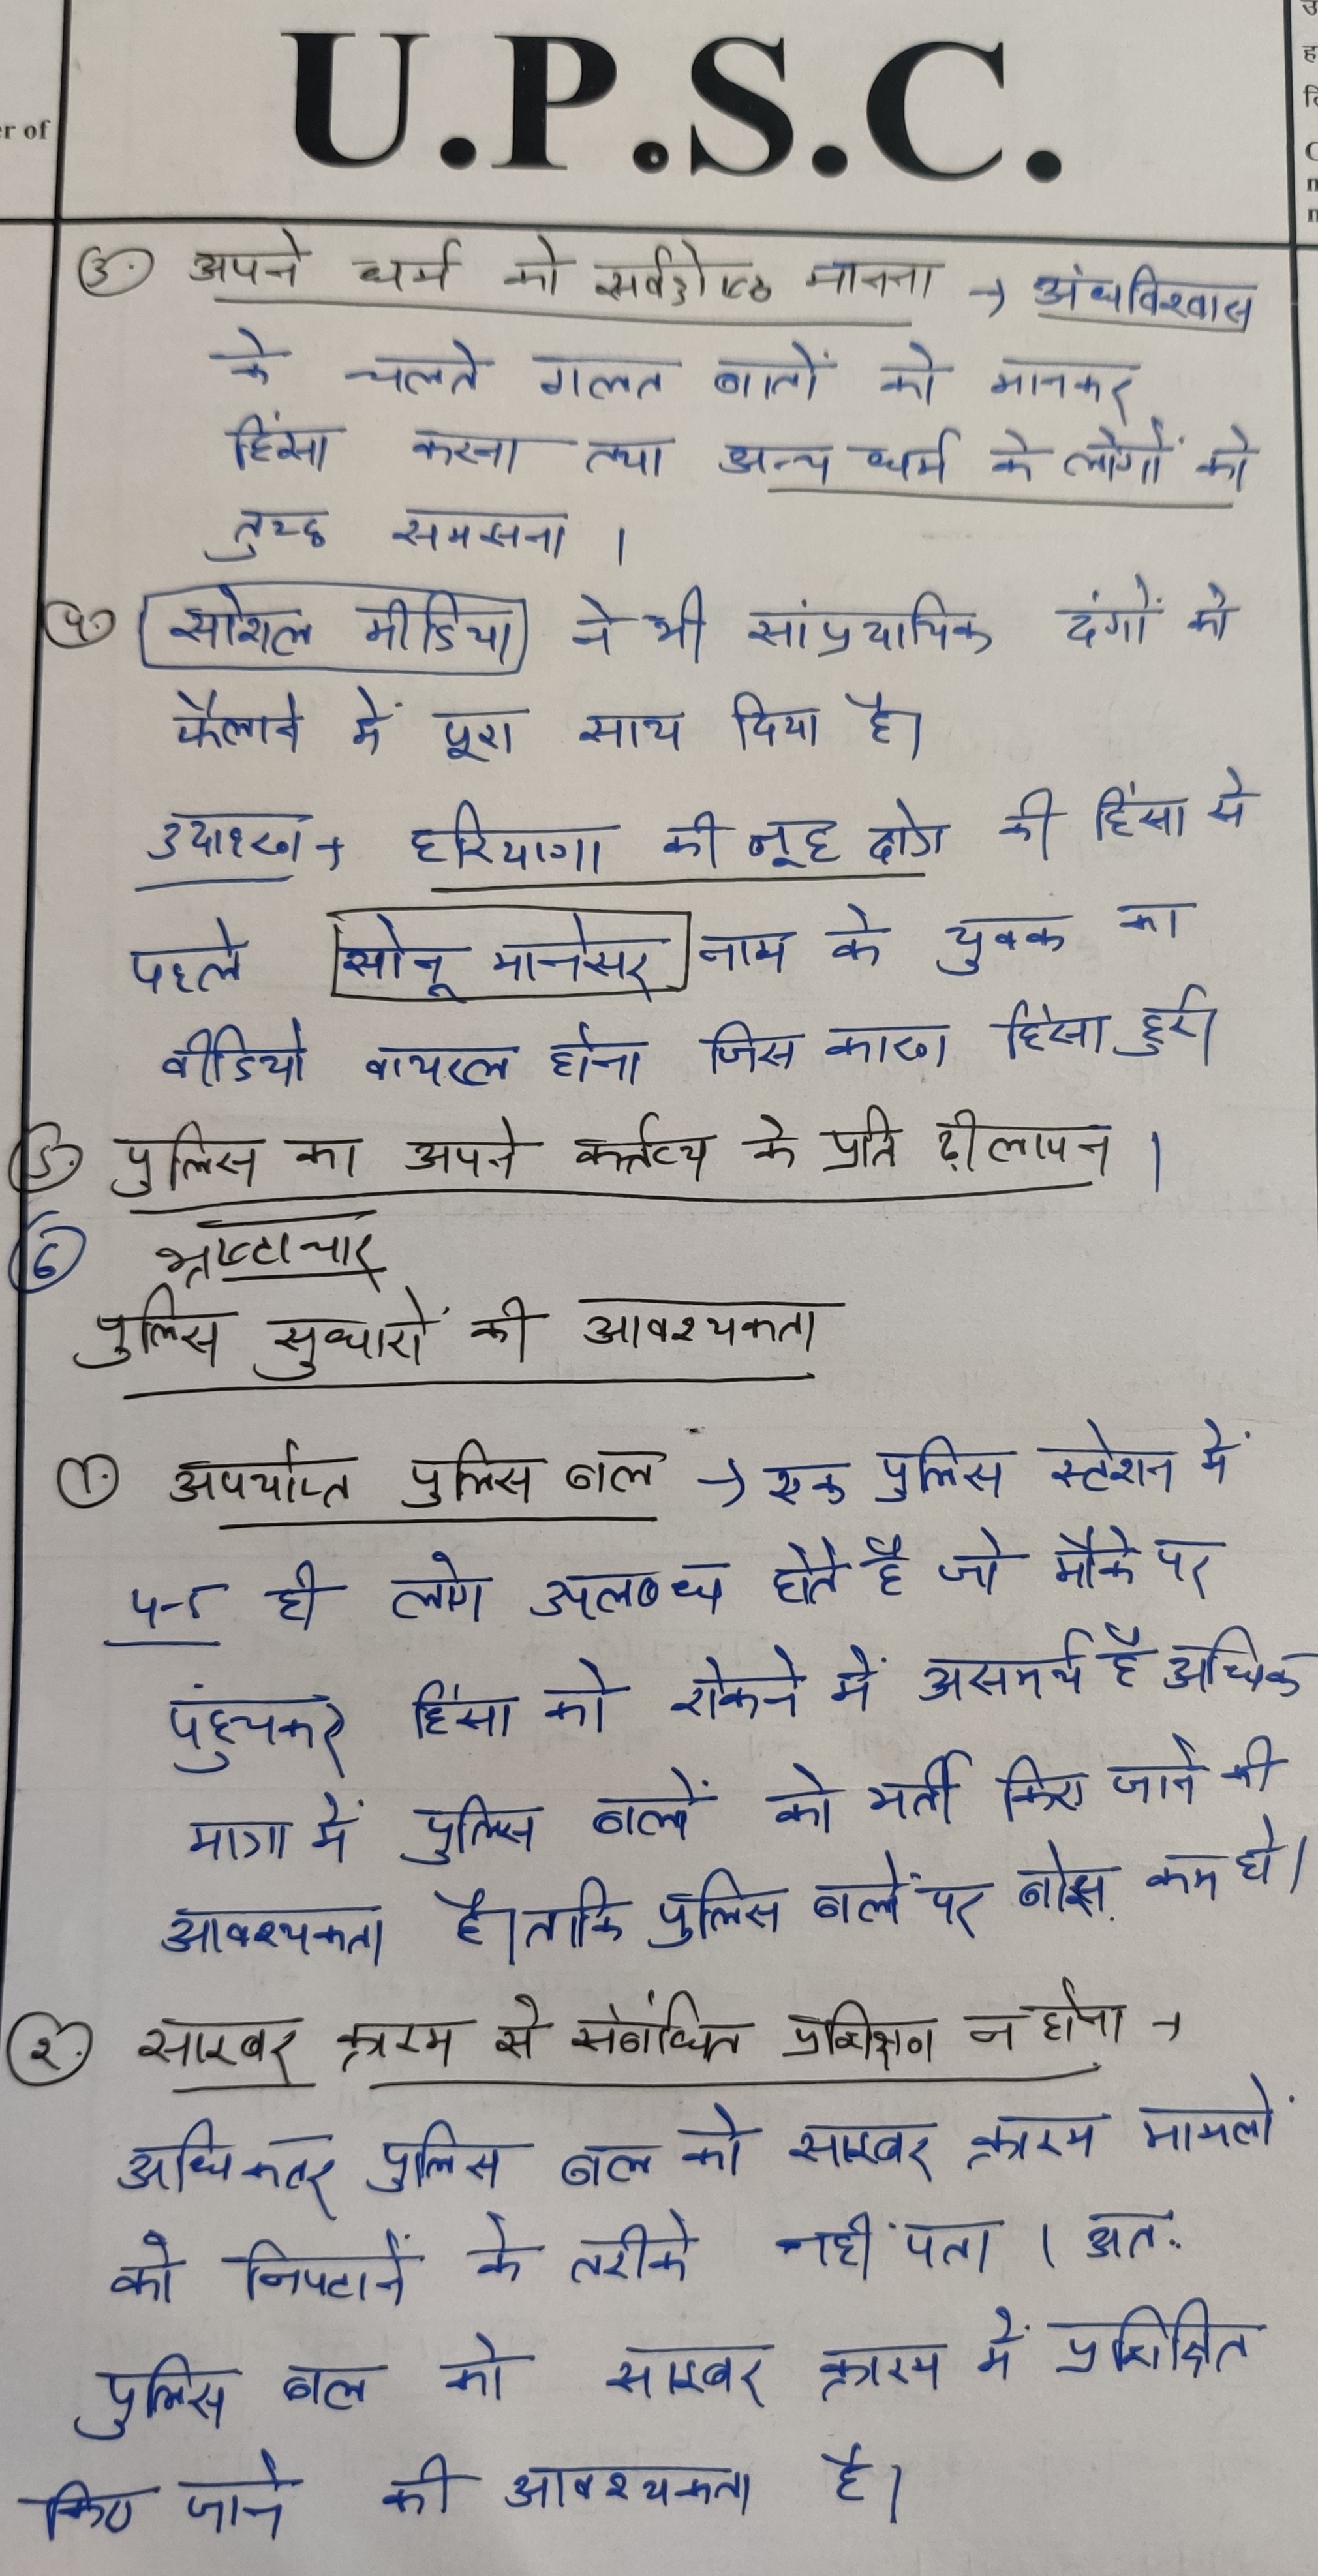 र of
U.P.S.C.
3. अपने धर्म को सर्वश्रेष्ठ मानना → अंधविश्वास
के चलते गलत बातों को मानकर
हिंसा करना तथा अन्य धर्म के लोगों को
तुच्छ समझना ।
4. सोशल मीडिया ने भी सांप्रदायिक दंगों को
फैलाने में पूरा साथ दिया है।
उदाहरण → हरियाणा की नूह दंगे की हिंसा से
पहले सोनू मानेसर नाम के युवक का
वीडियो वायरल होना जिस कारण हिंसा हुई।
5. पुलिस का अपने कर्त्तव्य के प्रति ढ़ीलापन ।
6 भ्रष्टाचार
पुलिस सुधारों की आवश्यकता
1. अपर्याप्त पुलिस बल → एक पुलिस स्टेशन में
ही लोग उपलब्ध होते है जो मौके पर
पंहुचकर हिंसा को रोकने में असमर्थ है अधिक
मात्रा में पुलिस बलों को भर्ती किए जाने की
आवश्यकता है। ताकि पुलिस बलों पर बोझ कम हो।
2. साइबर क्राइम से संबंधित प्रशिक्षण न होना →
अधिकतर पुलिस बल को साइबर क्राइम मामलों
को निपटानें के तरीके नहीं पता । अतः
पुलिस बल को साइबर क्राइम में प्रशिक्षित
किए जाने की आवश्यकता है।